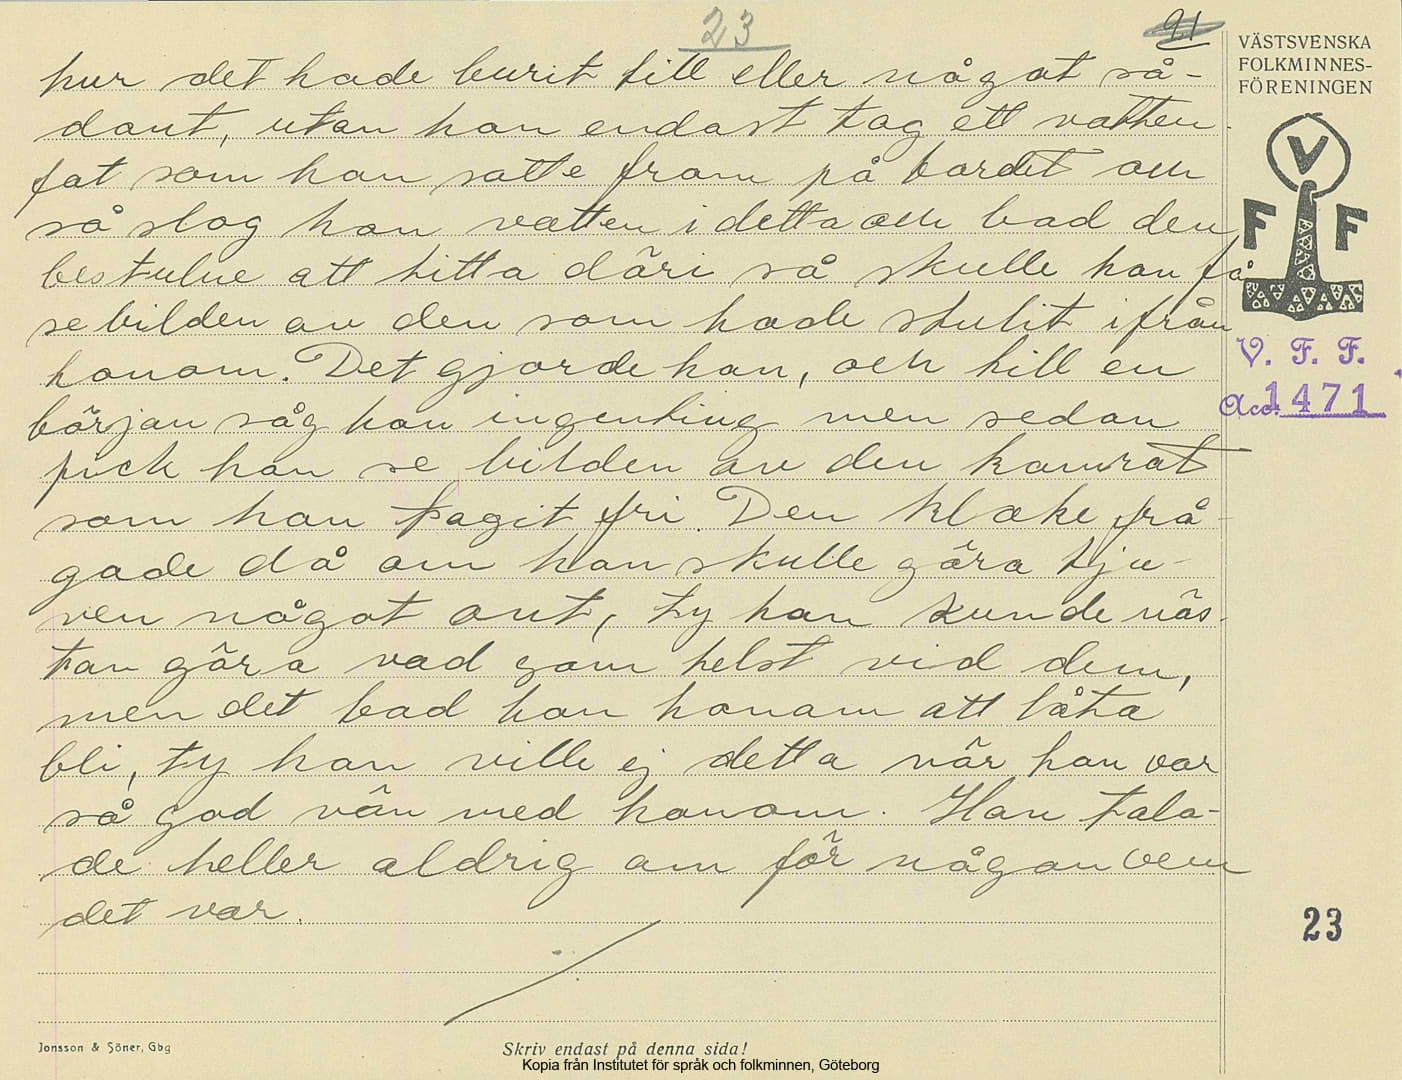 23
91
VÄSTSVENSKA
FOLKMINNES-
FÖRENINGEN
V
F F
V. F. F.
Acc. 1471
hur det hade burit till eller något så-
dant, utan han endast tog ett vatten-
fat som han satte fram på bordet och
så slog han vatten i detta och bad den
bestulne att titta däri så skulle han få
se bilden av den som hade stulit ifrån
honom. Det gjorde han, och till en
början såg han ingenting men sedan
fick han se bilden av den kamrat
som han tagit fri. Den kloke frå-
gade då om han skulle göra tju-
ven något ont, ty han kunde näs-
tan göra vad som helst vid dem,
men det bad han honom att låta
bli, ty han ville ej detta när han var
så god vän med honom. Han tala-
de heller aldrig om för någon vem
det var.
23
Jonsson & Söner, Gbg
Skriv endast på denna sida!
Kopia från Institutet för språk och folkminnen, Göteborg